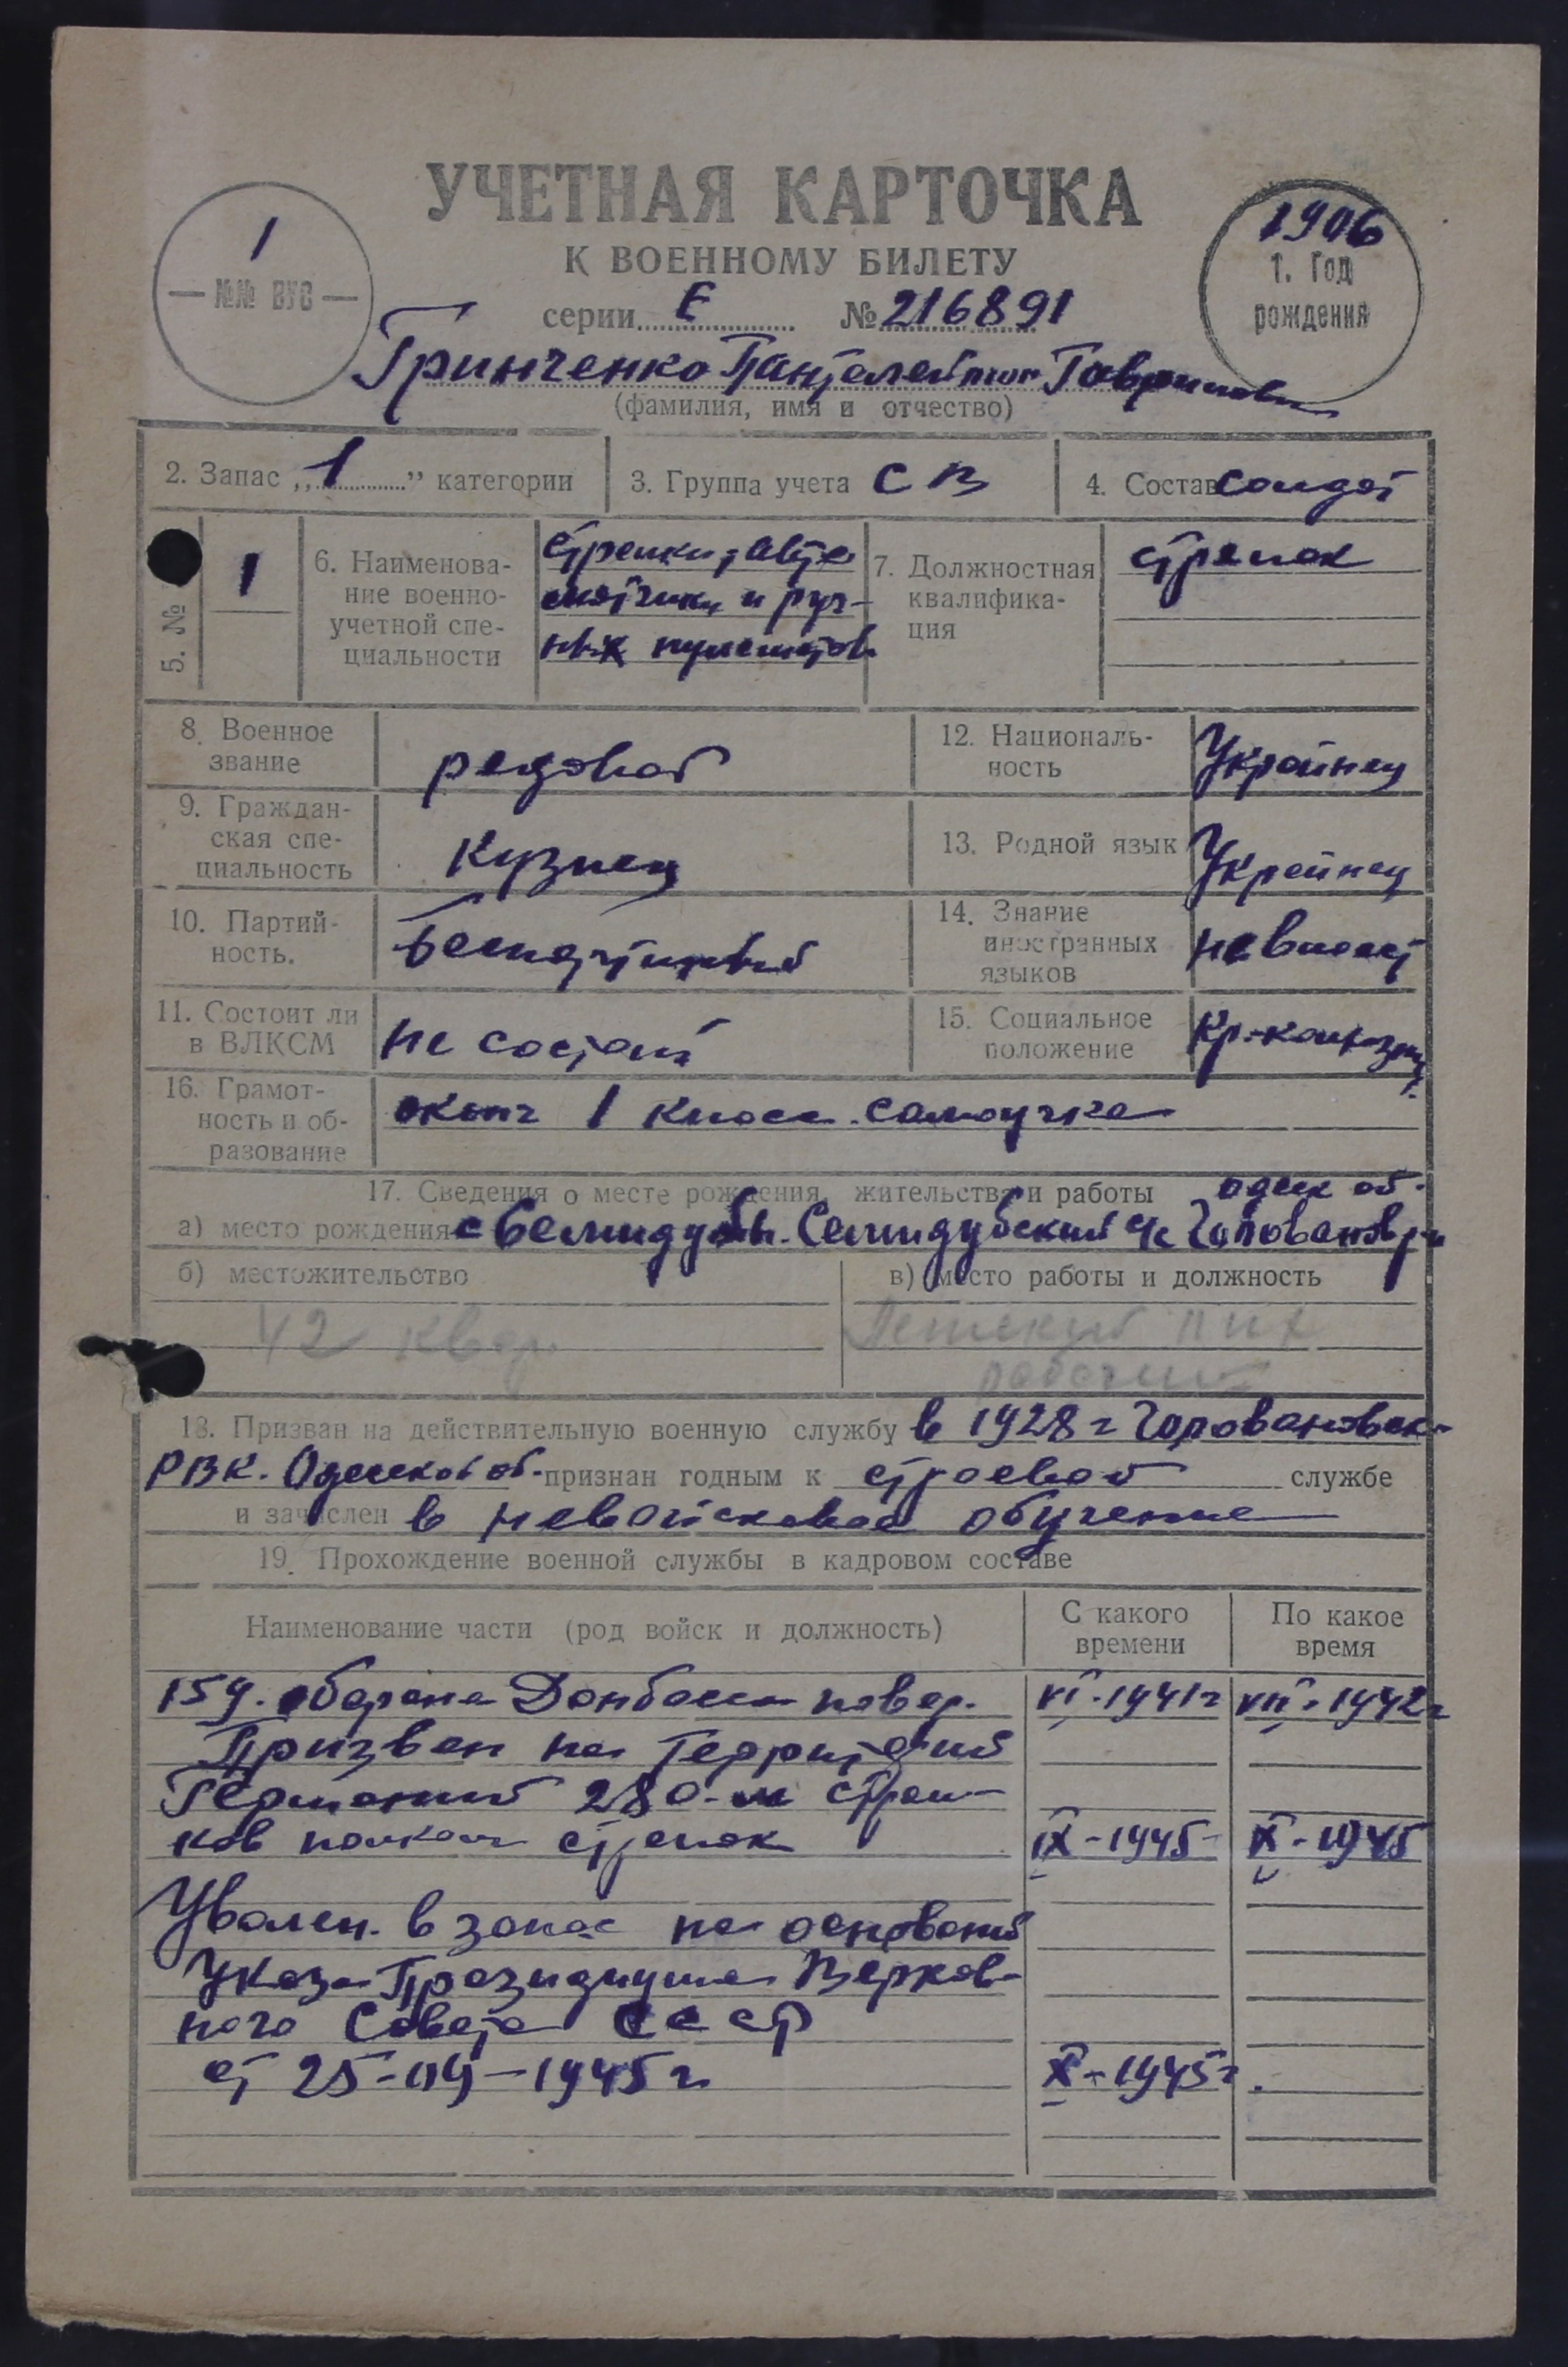 УЧЕТНАЯ КАРТОЧКА
К ВОЕННОМУ БИЛЕТУ
1
— №№ ВУС —
1906
1. Год
рождения
серии Е № 216891
Гринченко Пантелеймон Гаврилович
(фамилия, имя и отчество)
2. Запас „1” категории
3. Группа учета СВ
4. Состав солдат
5. №
1
6. Наименова-
ние военно-
учетной спе-
циальности
стрелки, авто
матчики и руч-
ных пулеметов
7. Должностная
квалифика-
ция
стрелок
8. Военное
звание
рядовой
12. Националь-
ность
Украинец
9. Граждан-
ская спе-
циальность
Кузнец
13. Родной язык
Украинец
10. Партий-
ность.
Беспартийный
14. Знание
иностранных
языков
не влает
11. Состоит ли
в ВЛКСМ
не состоит
15. Социальное
положение
Кр-колхозник
16. Грамот-
ность и об-
разование
оконч 1 класс. самоучка
17. Сведения о месте рождения, жительства и работы
одеск об.
а) место рождения с Семидубы. Семидубский с/с Голованов р-н
б) местожительство
в) место работы и должность
42 квар.
рабочий
18. Призван на действительную военную службу в 1928 г Головановск-
РВК. Одесской об. признан годным к строевой службе
и зачислен в невойсковое обучение
19. Прохождение военной службы в кадровом составе
Наименование части (род войск и должность)
С какого
времени
По какое
время
159. оборона Донбасса повар. VI-1941г VII-1942г
Призван на территорий
Германий 280-м стрел-
ков полком стрелок IX-1945- X-1945
Уволен. в запас на оснований
Указа Президиума Верхов-
ного Совета СССР
от 25-09-1945 г X-1945г.